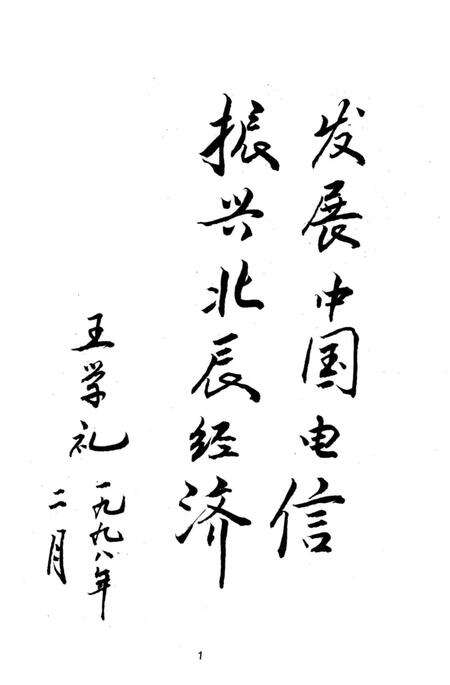 发展中国电信
振兴北辰经济
王学礼
一九九八年
二月
1